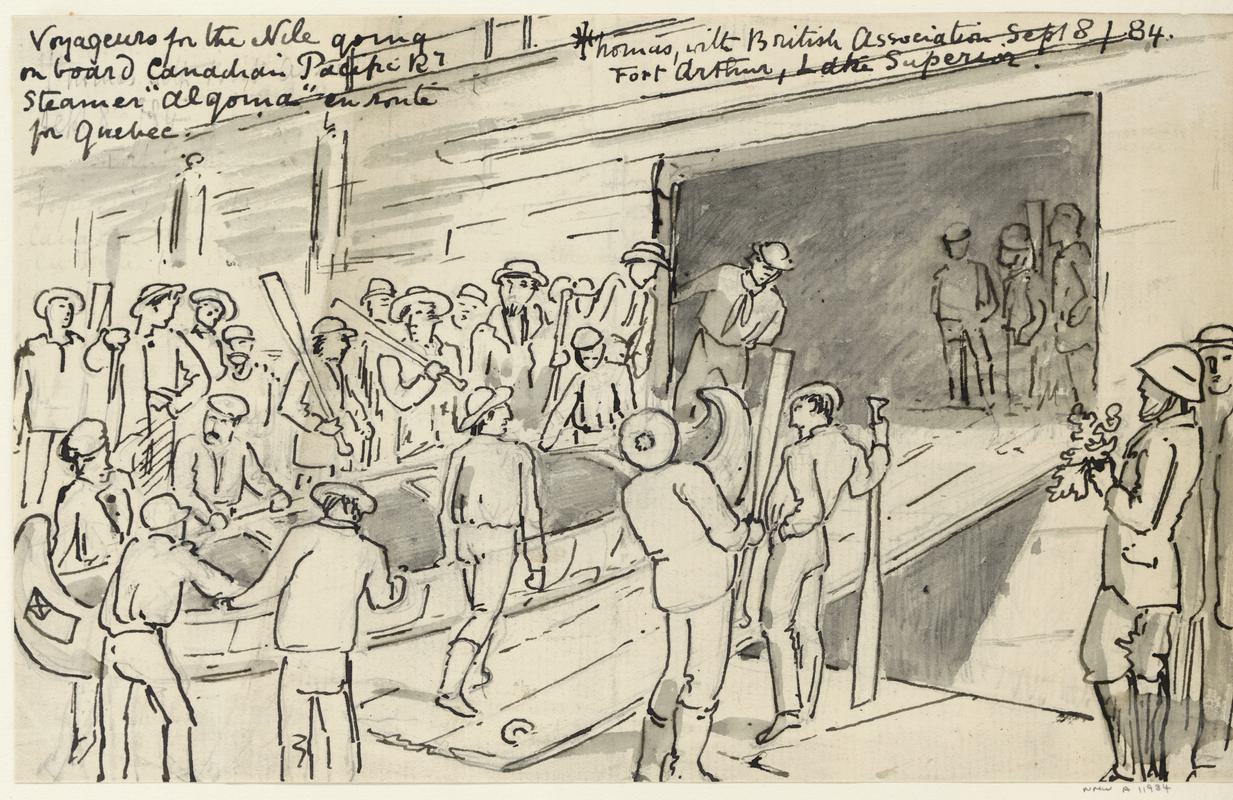 Voyageurs for the Nile going
on board Canadian Pacific Ry
Steamer "Algoma" en route
for Quebec.
*Thomas, with British Association Sept 8 / 84.
Fort Arthur, Lake Superior.
NMW A 11984